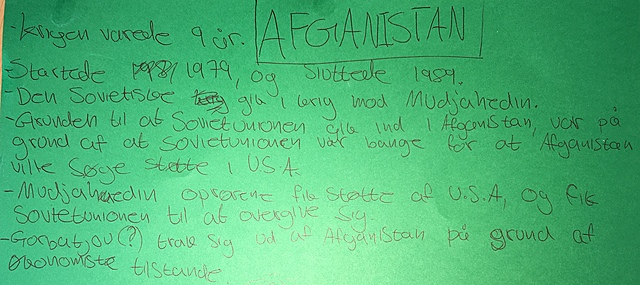 AFGANISTAN
-krigen varede 9 år.
-Startede 1979, og Sluttede 1989.
-Den Sovietiske gik i krig mod Mudjahedin.
-Grunden til at Sovietunionen gik ind i Afganistan, var på
grund af at Sovietunionen var bange for at Afganistan
ville Søge støtte i U.S.A.
-Mudjahedin oprørene fik Støtte af U.S.A, og fik
Sovietunionen til at overgive sig.
-Gorbatjov(?) trak sig ud af Afganistan på grund af
økonomiske tilstande